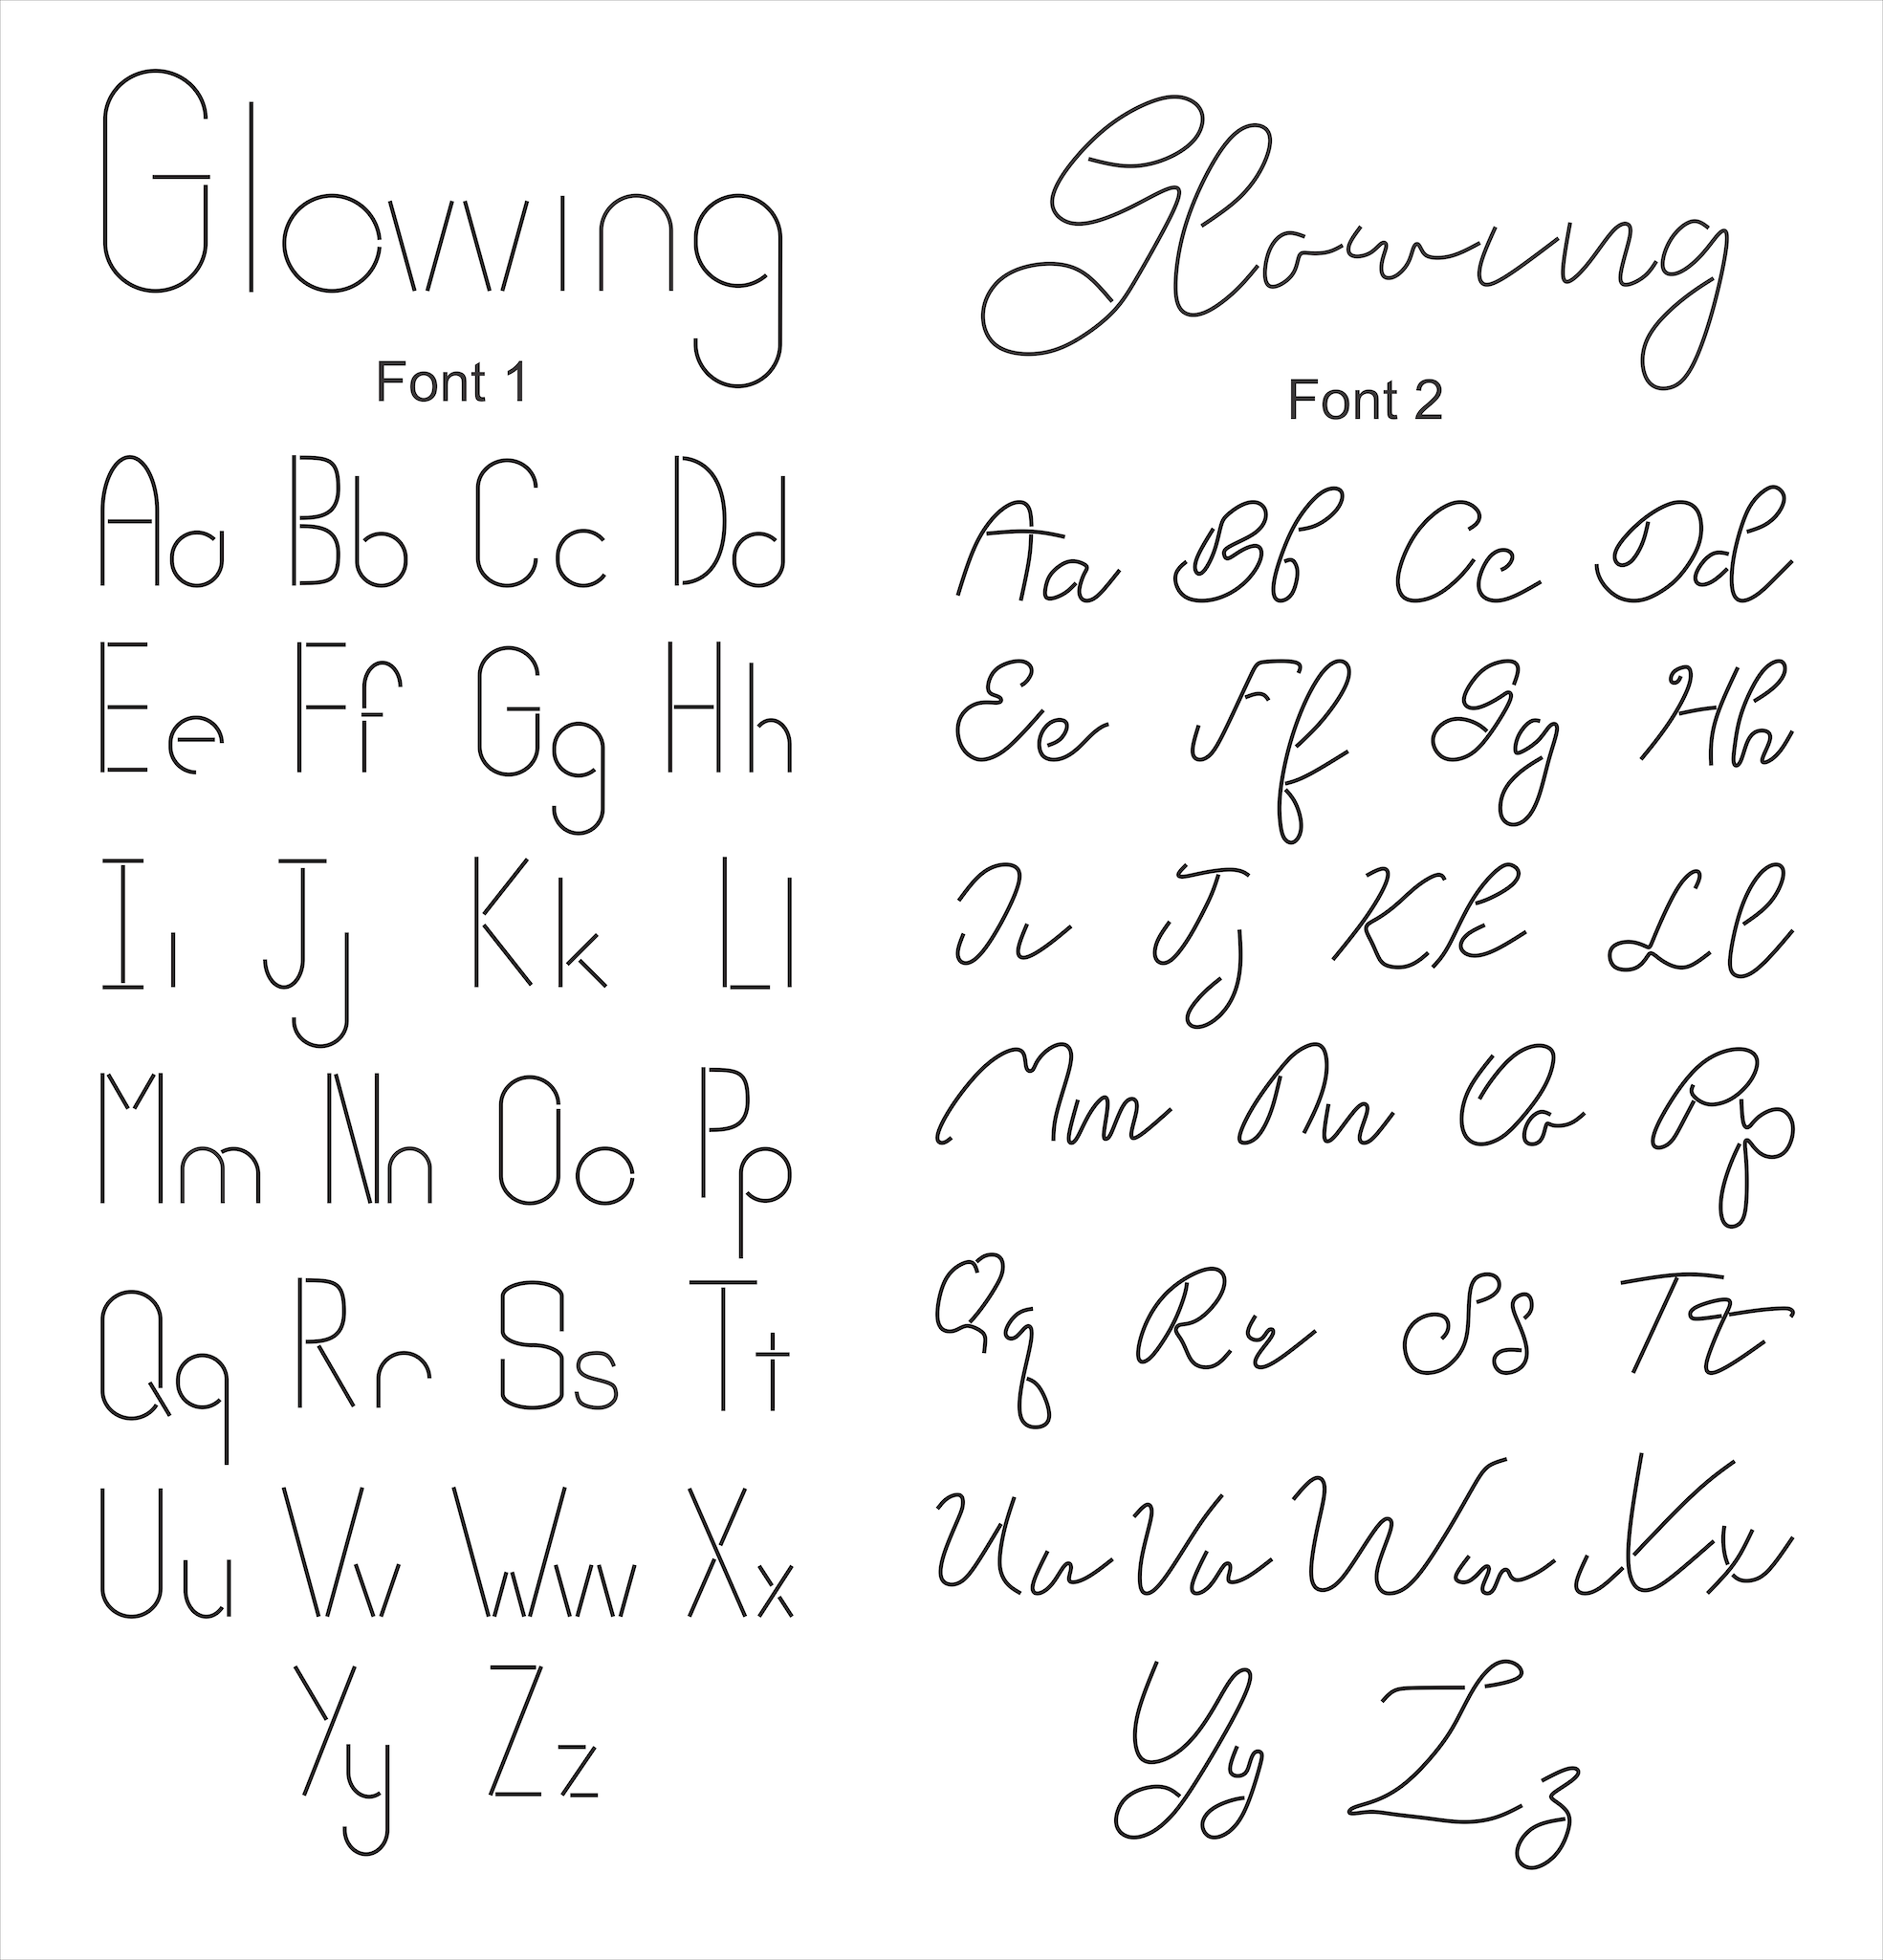 Glowing
Font 1
Aa Bb Cc Dd
Ee Ff Gg Hh
Iı Jj Kk Ll
Mm Nn Oo Pp
Qq Rr Ss Tt
Uu Vv Ww Xx
Yy Zz
Glowing
Font 2
Aa Bb Cc Dd
Ee Ff Gg Hh
Iı Jj Kk Ll
Mm Nn Oo Pp
Qq Rr Ss Tt
Uu Vv Ww Xx
Yy Zz